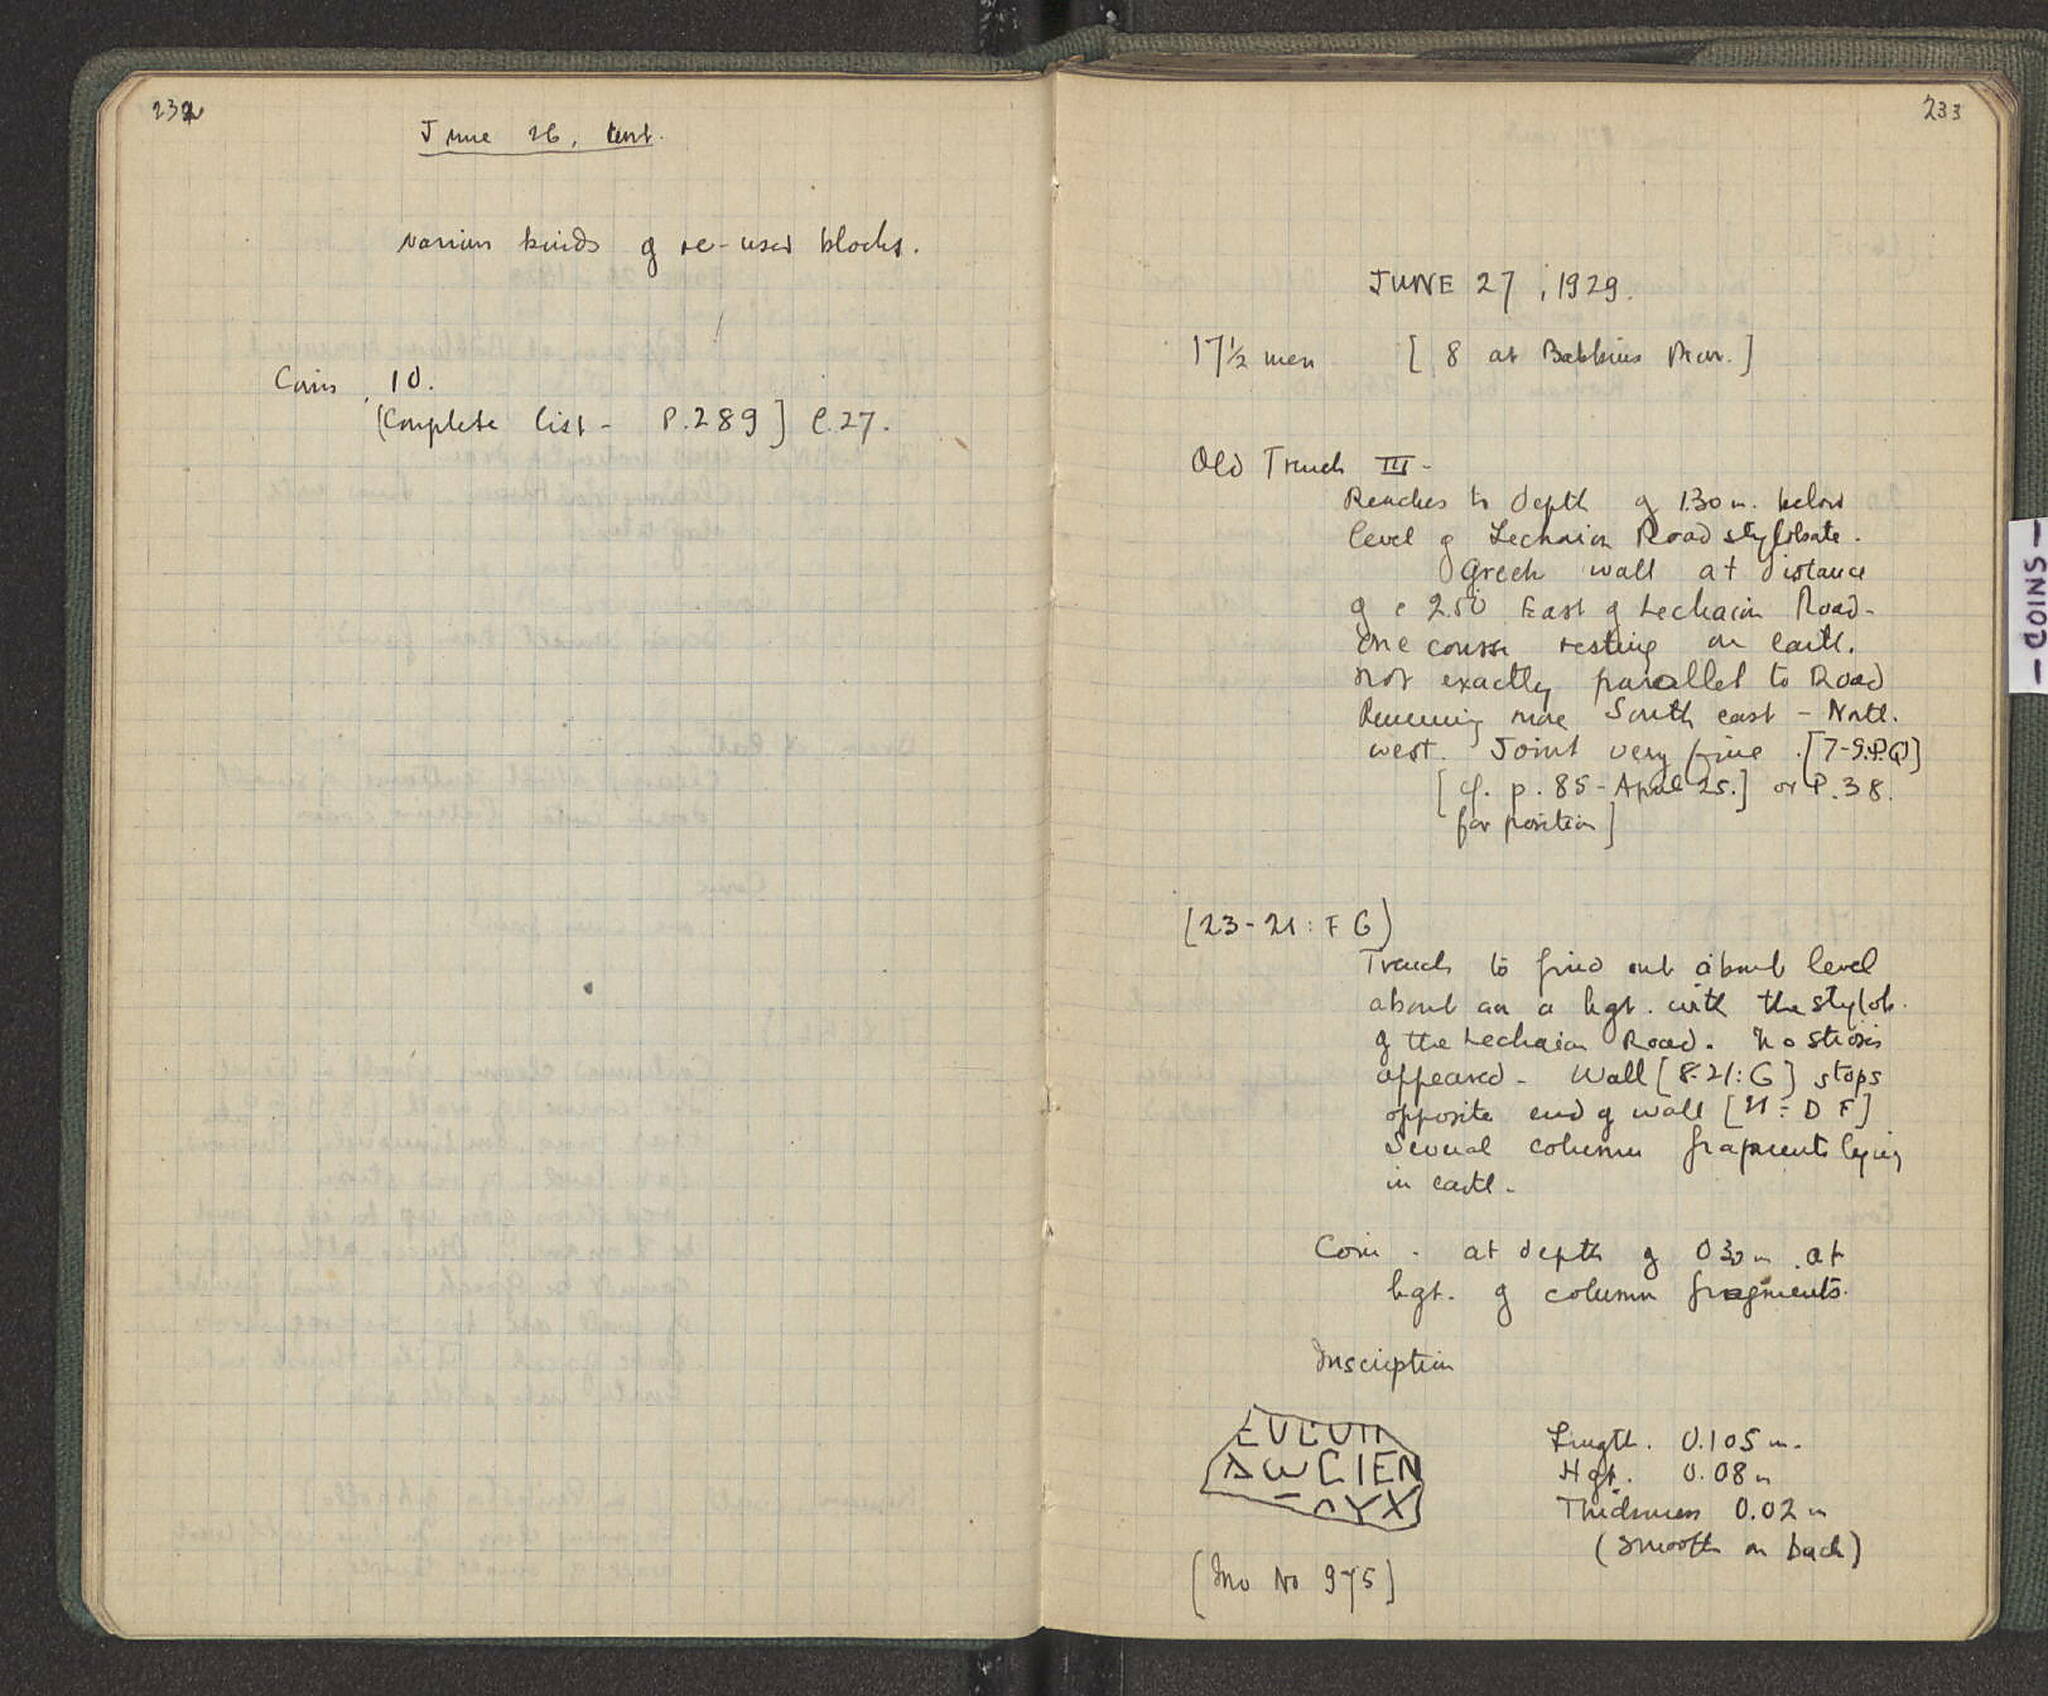 232
June 26, cont.
various kinds of re-used blocks.
Coins, 10.
[Complete list - P.289] C.27.
233
JUNE 27, 1929.
17½ men [8 at Babbius Mon.]
Old Trench III -
Reaches to depth of 1.30 m. below
level of Lechaion Road stylobate.
Greek wall at distance
of c 2.50 East of Lechaion Road -
one course resting on earth.
not exactly parallel to Road
Running more South east - North
west. Joint very fine. [7-9:P.Q]
[cf. p. 85 - April 25.] or P.38.
for position]
[23-21: F G]
Trench to find out about level
about on a hgt. with the stylob.
of the Lechaion Road. No stroses
appeared - Wall [8-21: G] stops
opposite end of wall [21: D F]
Several column fragments lying
in earth -
Coin - at depth of 0.30 m. at
hgt. of column fragments.
Inscription
ΔωCIEN
ΥΧ
Length. 0.105 m.
Hgt. 0.08 m
Thickness 0.02 m
(smooth on back)
[Inv No 975]
- COINS -